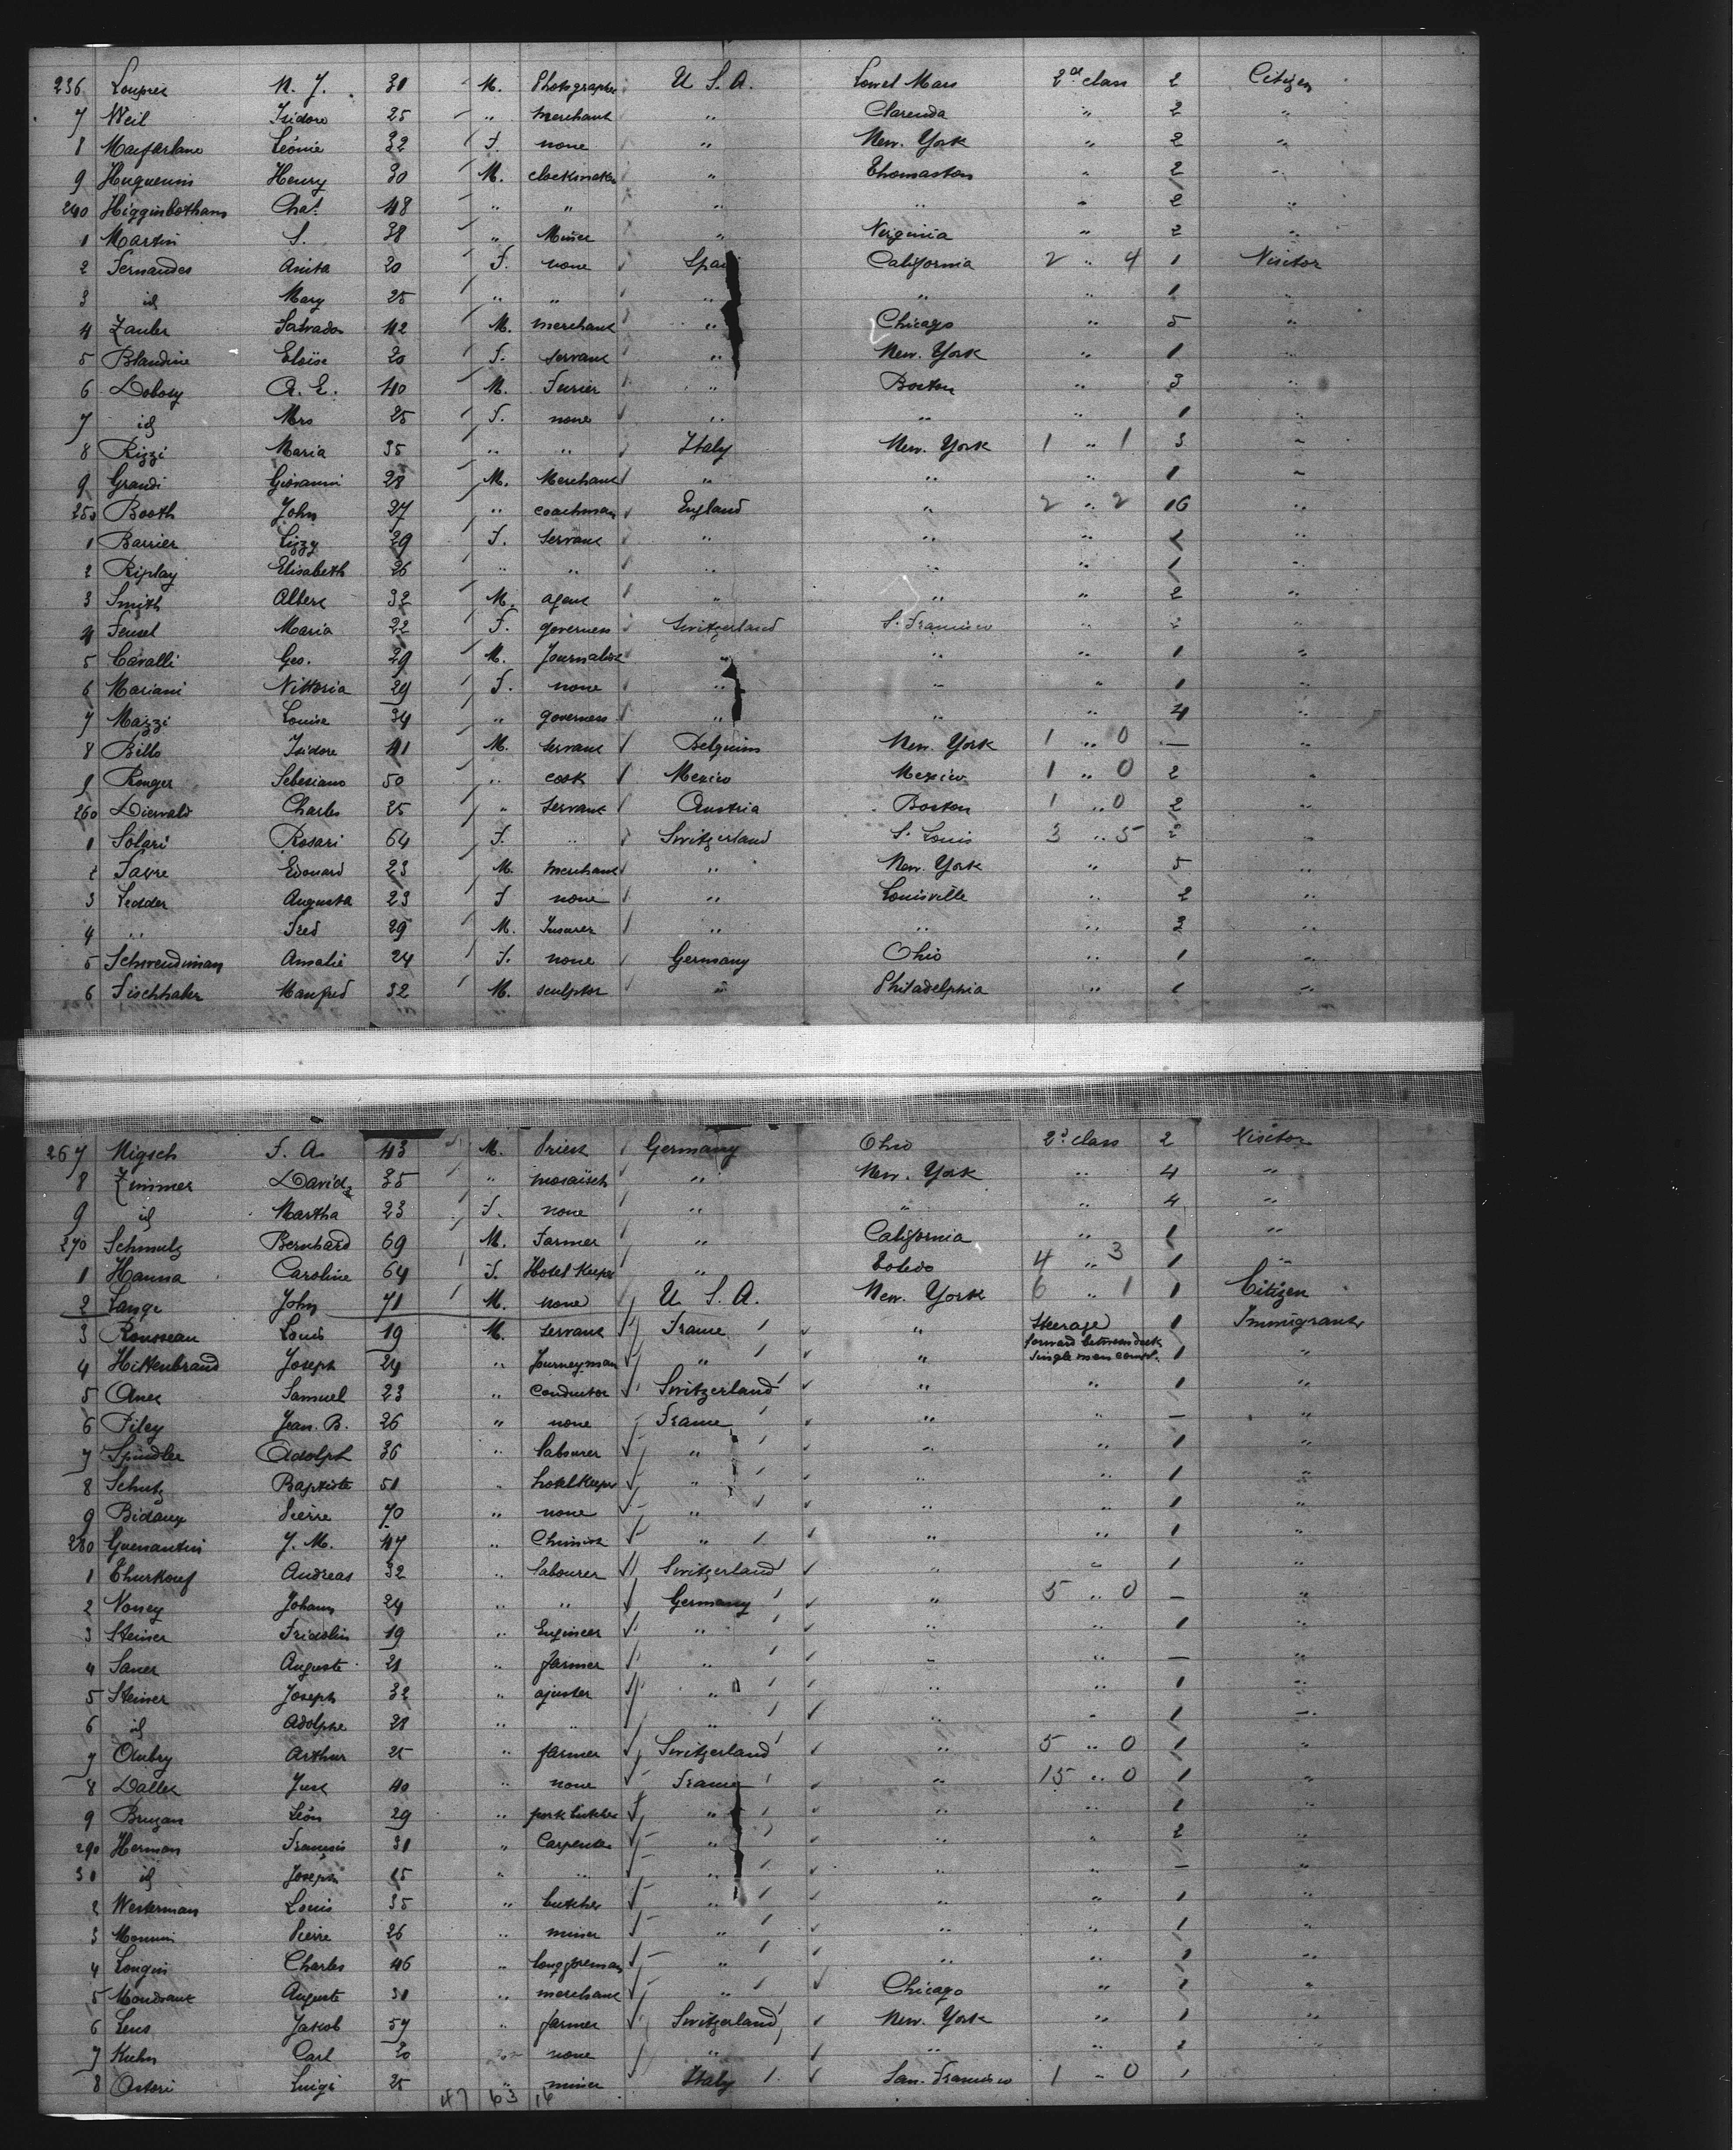 236 Louprec N. J. 30 M. Photographer U. S. A. Lowel Mass 2d class 2 Citizen
7 Weil Isidore 25 " merchant " Clarenda " 2 "
8 Macfarlane Léonie 32 F. none " New. York " 2 "
9 Huguenin Henry 30 M. clockmaker " Thomaston " 2 "
240 Higginbotham Chas. 48 " " " " " 2 "
1 Martin S. 38 " Miner " Virginia " 2 "
2 Fernandes Anita 20 F. none Spain California 2 " 4 1 Visitor
3 id Mary 25 " " " " " 1 "
4 Zauler Salvador 42 M. merchant " Chicago " 5 "
5 Blandine Eloïse 20 F. servant " New. York " 1 "
6 Dobosy A. E. 40 M. Furier " Boston " 3 "
7 id Mrs 25 F. none " " " 1 "
8 Rizzi Maria 35 " " Italy New. York 1 " 1 3 "
9 Grandi Giovanni 28 M. Merchant " " " 1 "
250 Booth John 27 " coachman England " 2 " 2 16 "
1 Barrier Lizzy 29 F. servant " " " "
2 Riplay Elisabeth 26 " " " " " 1 "
3 Smith Albert 32 M. agent " " " 2 "
4 Feusel Maria 22 F. governess Switzerland S. Francisco " 2 "
5 Cavalli Geo. 29 M. Journalist " " " 1 "
6 Mariani Vittoria 29 F. none " " " 1 "
7 Mazzi Louise 34 " governess " " " 4 "
8 Billo Isidore 41 M. servant Belguim New. York 1 " 0 — "
9 Rouger Sebesiano 50 " cook Mexico Mexico 1 " 0 2 "
260 Dierwald Charles 25 " servant Austria Boston 1 " 0 2 "
1 Solari Rosari 64 F. " Switzerland S. Louis 3 " 5 2 "
2 Favre Edouard 23 M. merchant " New. York " 5 "
3 Ledder Augusta 23 F none " Louisville " 2 "
4 " Fred 29 M. Insurer " " " 3 "
5 Schwendiman Amalie 24 F. none Germany Ohio " 1 "
6 Fischhaber Manfred 32 M. sculptor " Philadelphia " 1 "
267 Nigsch F. A. 43 M. Priest Germany Ohio 2d class 2 Visitor
8 Zimmer David 35 " mosaïsch " New. York " 4 "
9 id Martha 23 F. none " " " 4 "
270 Schmulz Bernhard 69 M. Farmer " California " 1 "
1 Hanna Caroline 64 F. Hotel Keeper " Toledo 4 " 3 1 "
2 Lange John 71 M. none U. S. A. New. York 6 " 1 1 Citizen
3 Rousseau Louis 19 M. servant France " Steerage 1 Immigrant
forward between deck
4 Hiltenbrand Joseph 24 " Journeyman " " single men comp. 1 "
5 Anex Samuel 23 " conductor Switzerland " " 1 "
6 Piley Jean. B. 26 " none France " " — "
7 Spindler Adolph 36 " labourer " " " 1 "
8 Schutz Baptiste 51 " hotelkeeper " " " 1 "
9 Bidaux Pierre 70 " none " " " 1 "
280 Guenantin J. M. 47 " Chimist " " " 1 "
1 Thurkouf Andreas 32 " labourer Switzerland " " 1 "
2 Noney Johann 24 " " Germany " 5 " 0 — "
3 Steiner Fridolin 19 " Engineer " " " 1 "
4 Saner Auguste 21 " farmer " " " — "
5 Steiner Joseph 32 " ajuster " " " 1 "
6 id Adolphe 28 " " " " " 1 "
7 Aubry Arthur 25 " farmer Switzerland " 5 " 0 1 "
8 Dallet Just 40 " none France " 15 " 0 1 "
9 Bruzan Léon 29 " pork butcher " " " 1 "
290 Herman François 31 " Carpenter " " " 2 "
id Joseph 15 " " " " " — "
2 Westerman Louis 35 " butcher " " " 1 "
3 Monnin Pierre 26 " miner " " " 1 "
4 Longin Charles 46 " " " " 1 "
5 Auguste 31 " merchant " Chicago " 1 "
6 Leus Jakob 57 " farmer Switzerland New. York " 1 "
7 Kuhn Carl 20 " none " " " 2 "
8 Astori Luigi 25 " miner Italy San. Francisco 1 " 0 1
47 63 16